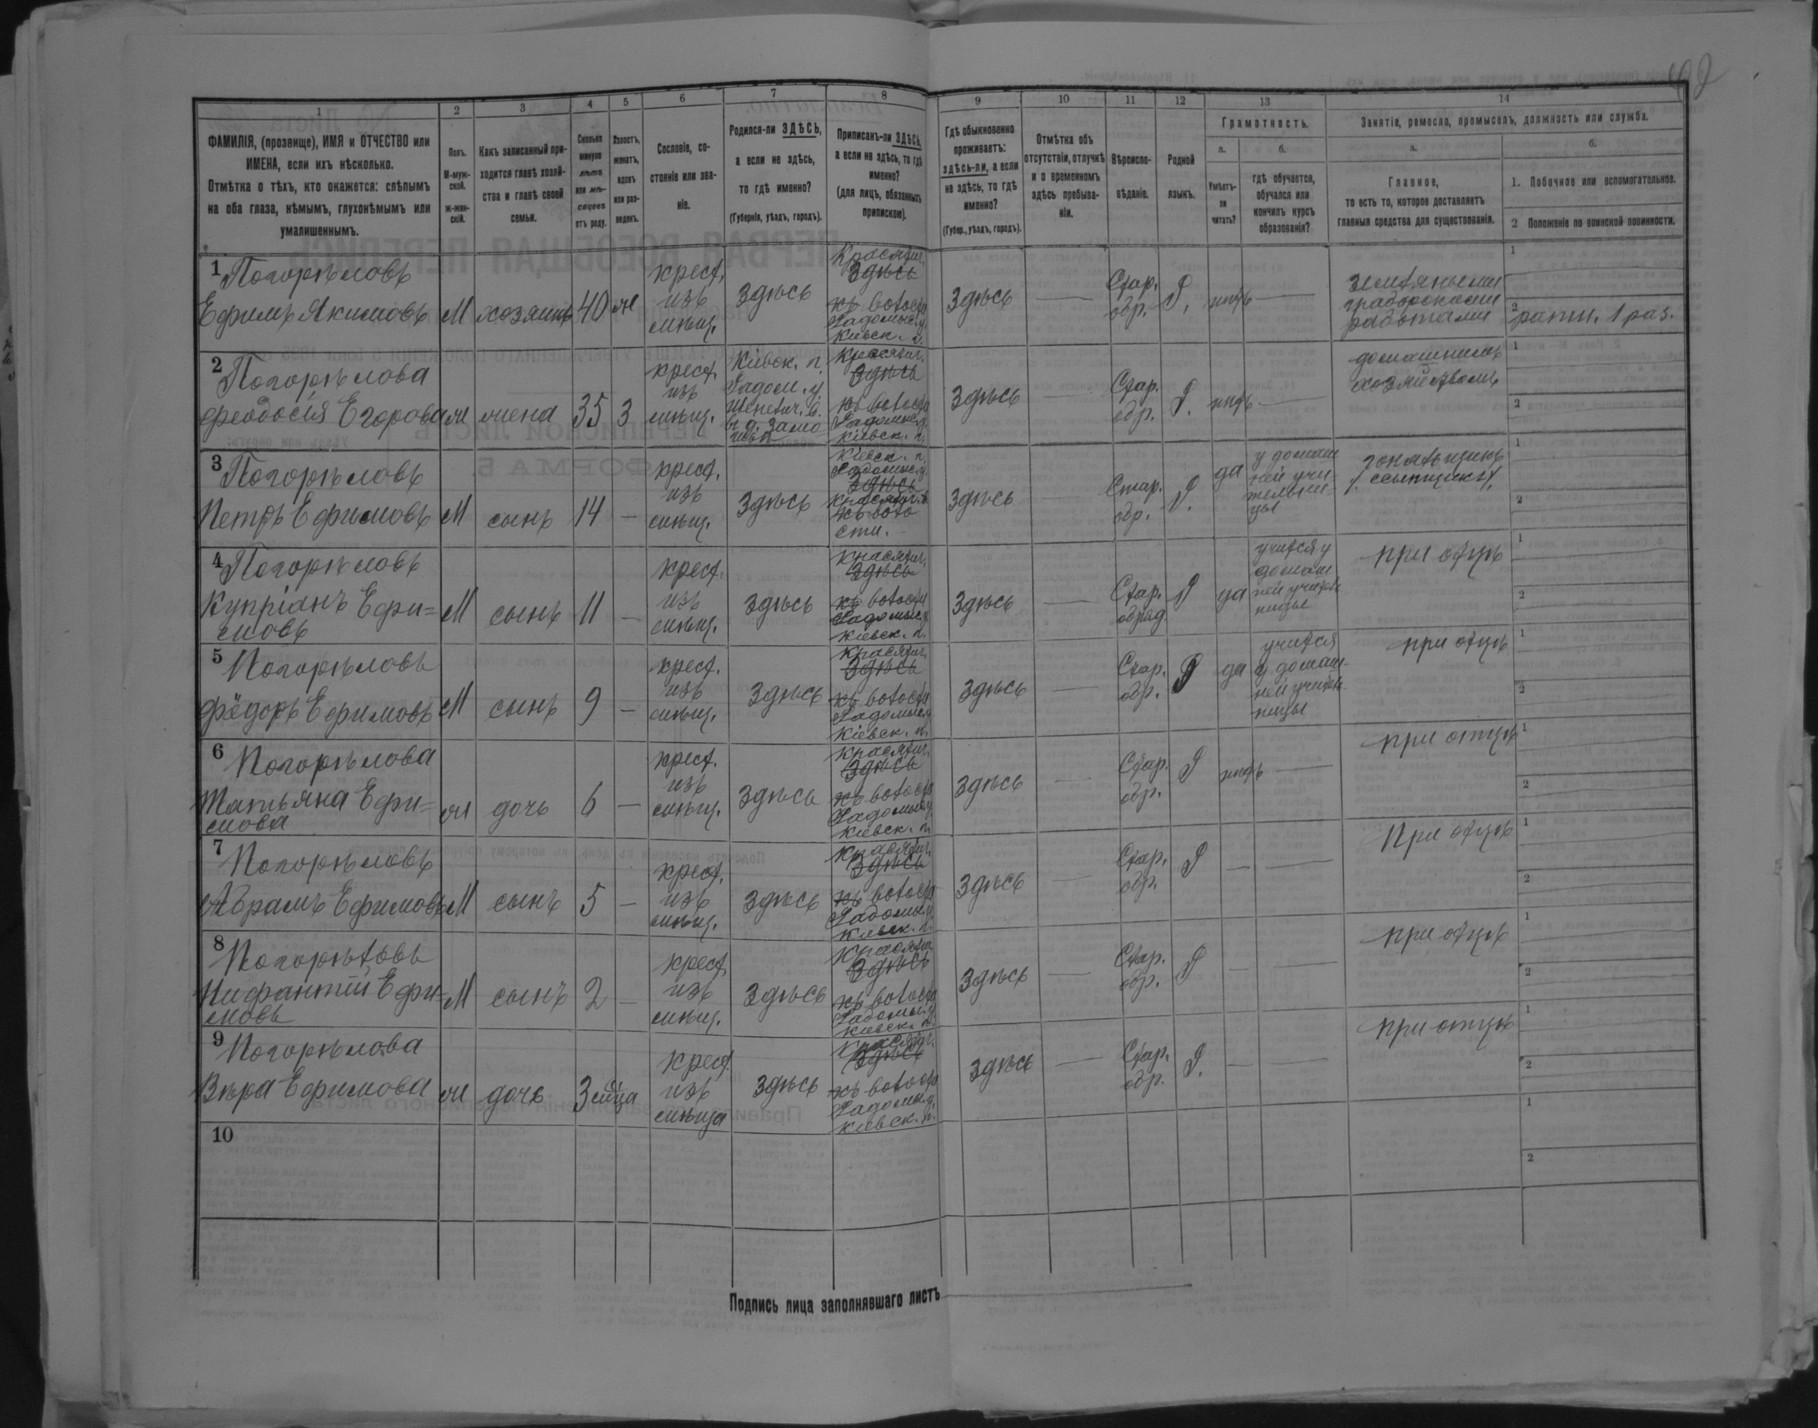 1 2 3 4 5 6 7 8 9 10 11 12 13 14
ФАМИЛІЯ, (прозвище), ИМЯ и ОТЧЕСТВО или
ИМЕНА, если ихъ нѣсколько.
Отмѣтка о тѣхъ, кто окажется: слѣпымъ
на оба глаза, нѣмымъ, глухонѣмымъ или
умалишеннымъ.
Полъ.
М-муж-
ской.
ж-жен-
скій.
Какъ записанный при-
ходится главѣ хозяй-
ства и главѣ своей
семьи.
Сколько
минуло
лѣтъ
или мѣ-
сяцевъ
отъ роду.
Холостъ,
женатъ,
вдовъ
или раз-
веденъ.
Сословіе, со-
стояніе или зва-
ніе.
Родился-ли ЗДѢСЬ,
а если не здѣсь,
то гдѣ именно?
(Губернія, уѣздъ, городъ).
Приписанъ-ли ЗДѢСЬ,
а если не здѣсь, то гдѣ
именно?
(для лицъ, обязанныхъ
припискою).
Гдѣ обыкновенно
проживаетъ:
здѣсь-ли, а если
не здѣсь, то гдѣ
именно?
(Губер., уѣздъ, городъ).
Отмѣтка объ
отсутствіи, отлучкѣ
и о временномъ
здѣсь пребыва-
ніи.
Вѣроиспо-
вѣданіе.
Родной
языкъ.
Грамотность.
а.
Умѣетъ-
ли
читать?
б.
гдѣ обучается,
обучался или
кончилъ курсъ
образованія?
Занятіе, ремесло, промыселъ, должность или служба.
а.
Главное,
то есть то, которое доставляетъ
главныя средства для существованія.
б.
1. Побочное или вспомогательное.
2 Положеніе по воинской повинности.
1 Погорѣловъ
Ефимъ Якимовъ М хозяинъ 40 ж
крест.
изъ
мѣщ.
здѣсь
Здѣсь
къ волости
Радомысл. у.
Кіевск. г.
здѣсь —
Стар.
обр.
Р.
нѣтъ —
землянými
грабарскими
работами
1
2 ратн. 1 раз.
2 Погорѣлова
Феодосія Егорова ж жена 35 З
крест.
изъ
мѣщ.
Кіевск. г.
Радом. у.
здѣсь
къ волости
Радомысл. у.
Кіевск. г.
здѣсь —
Стар.
обр.
Р.
нѣтъ —
домашнимъ
хозяйствомъ
1
2
3 Погорѣловъ
Петръ Ефимовъ М сынъ 14 —
крест.
изъ
мѣщ.
здѣсь
Кіевск. г.
Радомысл. у.
здѣсь
къ воло
сти.
здѣсь
Стар.
обр.
Р.
да
у домаш
ней учи-
тельни-
цы
1
2
4 Погорѣловъ
Купріанъ Ефи=
мовъ
М сынъ 11 —
крест.
изъ
мѣщ.
здѣсь
здѣсь
къ волости
Радомысл. у.
Кіевск. г.
здѣсь —
Стар.
обряд.
Р
да
учится у
домаш
ней учитель
ницы
при отцѣ
1
2
5 Погорѣловъ
Фёдоръ Ефимовъ М сынъ 9 —
крест.
изъ
мѣщ.
здѣсь
здѣсь
къ волости
Радомысл. у.
Кіевск. г.
здѣсь —
Стар.
обр.
Р
да
учится
у домаш-
ней учитель-
ницы
при отцѣ
1
2
6 Погорѣлова
Татьяна Ефи=
мова
ж дочь 6 —
крест.
изъ
мѣщ.
здѣсь
здѣсь
къ волости
Радомысл. у.
Кіевск. г.
здѣсь —
Стар.
обр.
Р
нѣтъ —
при отцѣ
1
2
7 Погорѣловъ
Абрамъ Ефимовъ М сынъ 5 —
крест.
изъ
мѣщ.
здѣсь
здѣсь
къ волости
Радомысл. у.
Кіевск. г.
здѣсь —
Стар.
обр.
Р
— —
При отцѣ
1
2
8 Погорѣловъ
Нифантій Ефи-
мовъ
М сынъ 2 —
крест.
изъ
мѣщ.
здѣсь
здѣсь
къ волости
Радомысл. у.
Кіевск. г.
здѣсь —
Стар.
обр.
Р
— —
при отцѣ
1
2
9 Погорѣлова
Вѣра Ефимова ж дочь 3 м-ца
крест.
изъ
мѣща
здѣсь
здѣсь
къ волости
Радомысл. у.
Кіевск. г.
здѣсь —
Стар.
обр.
Р.
— —
при отцѣ
1
2
10
1
2
Подпись лица заполнявшаго листъ